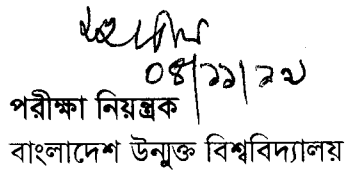 ০৪/১১/২১
পরীক্ষা নিয়ন্ত্রক
বাংলাদেশ উন্মুক্ত বিশ্ববিদ্যালয়